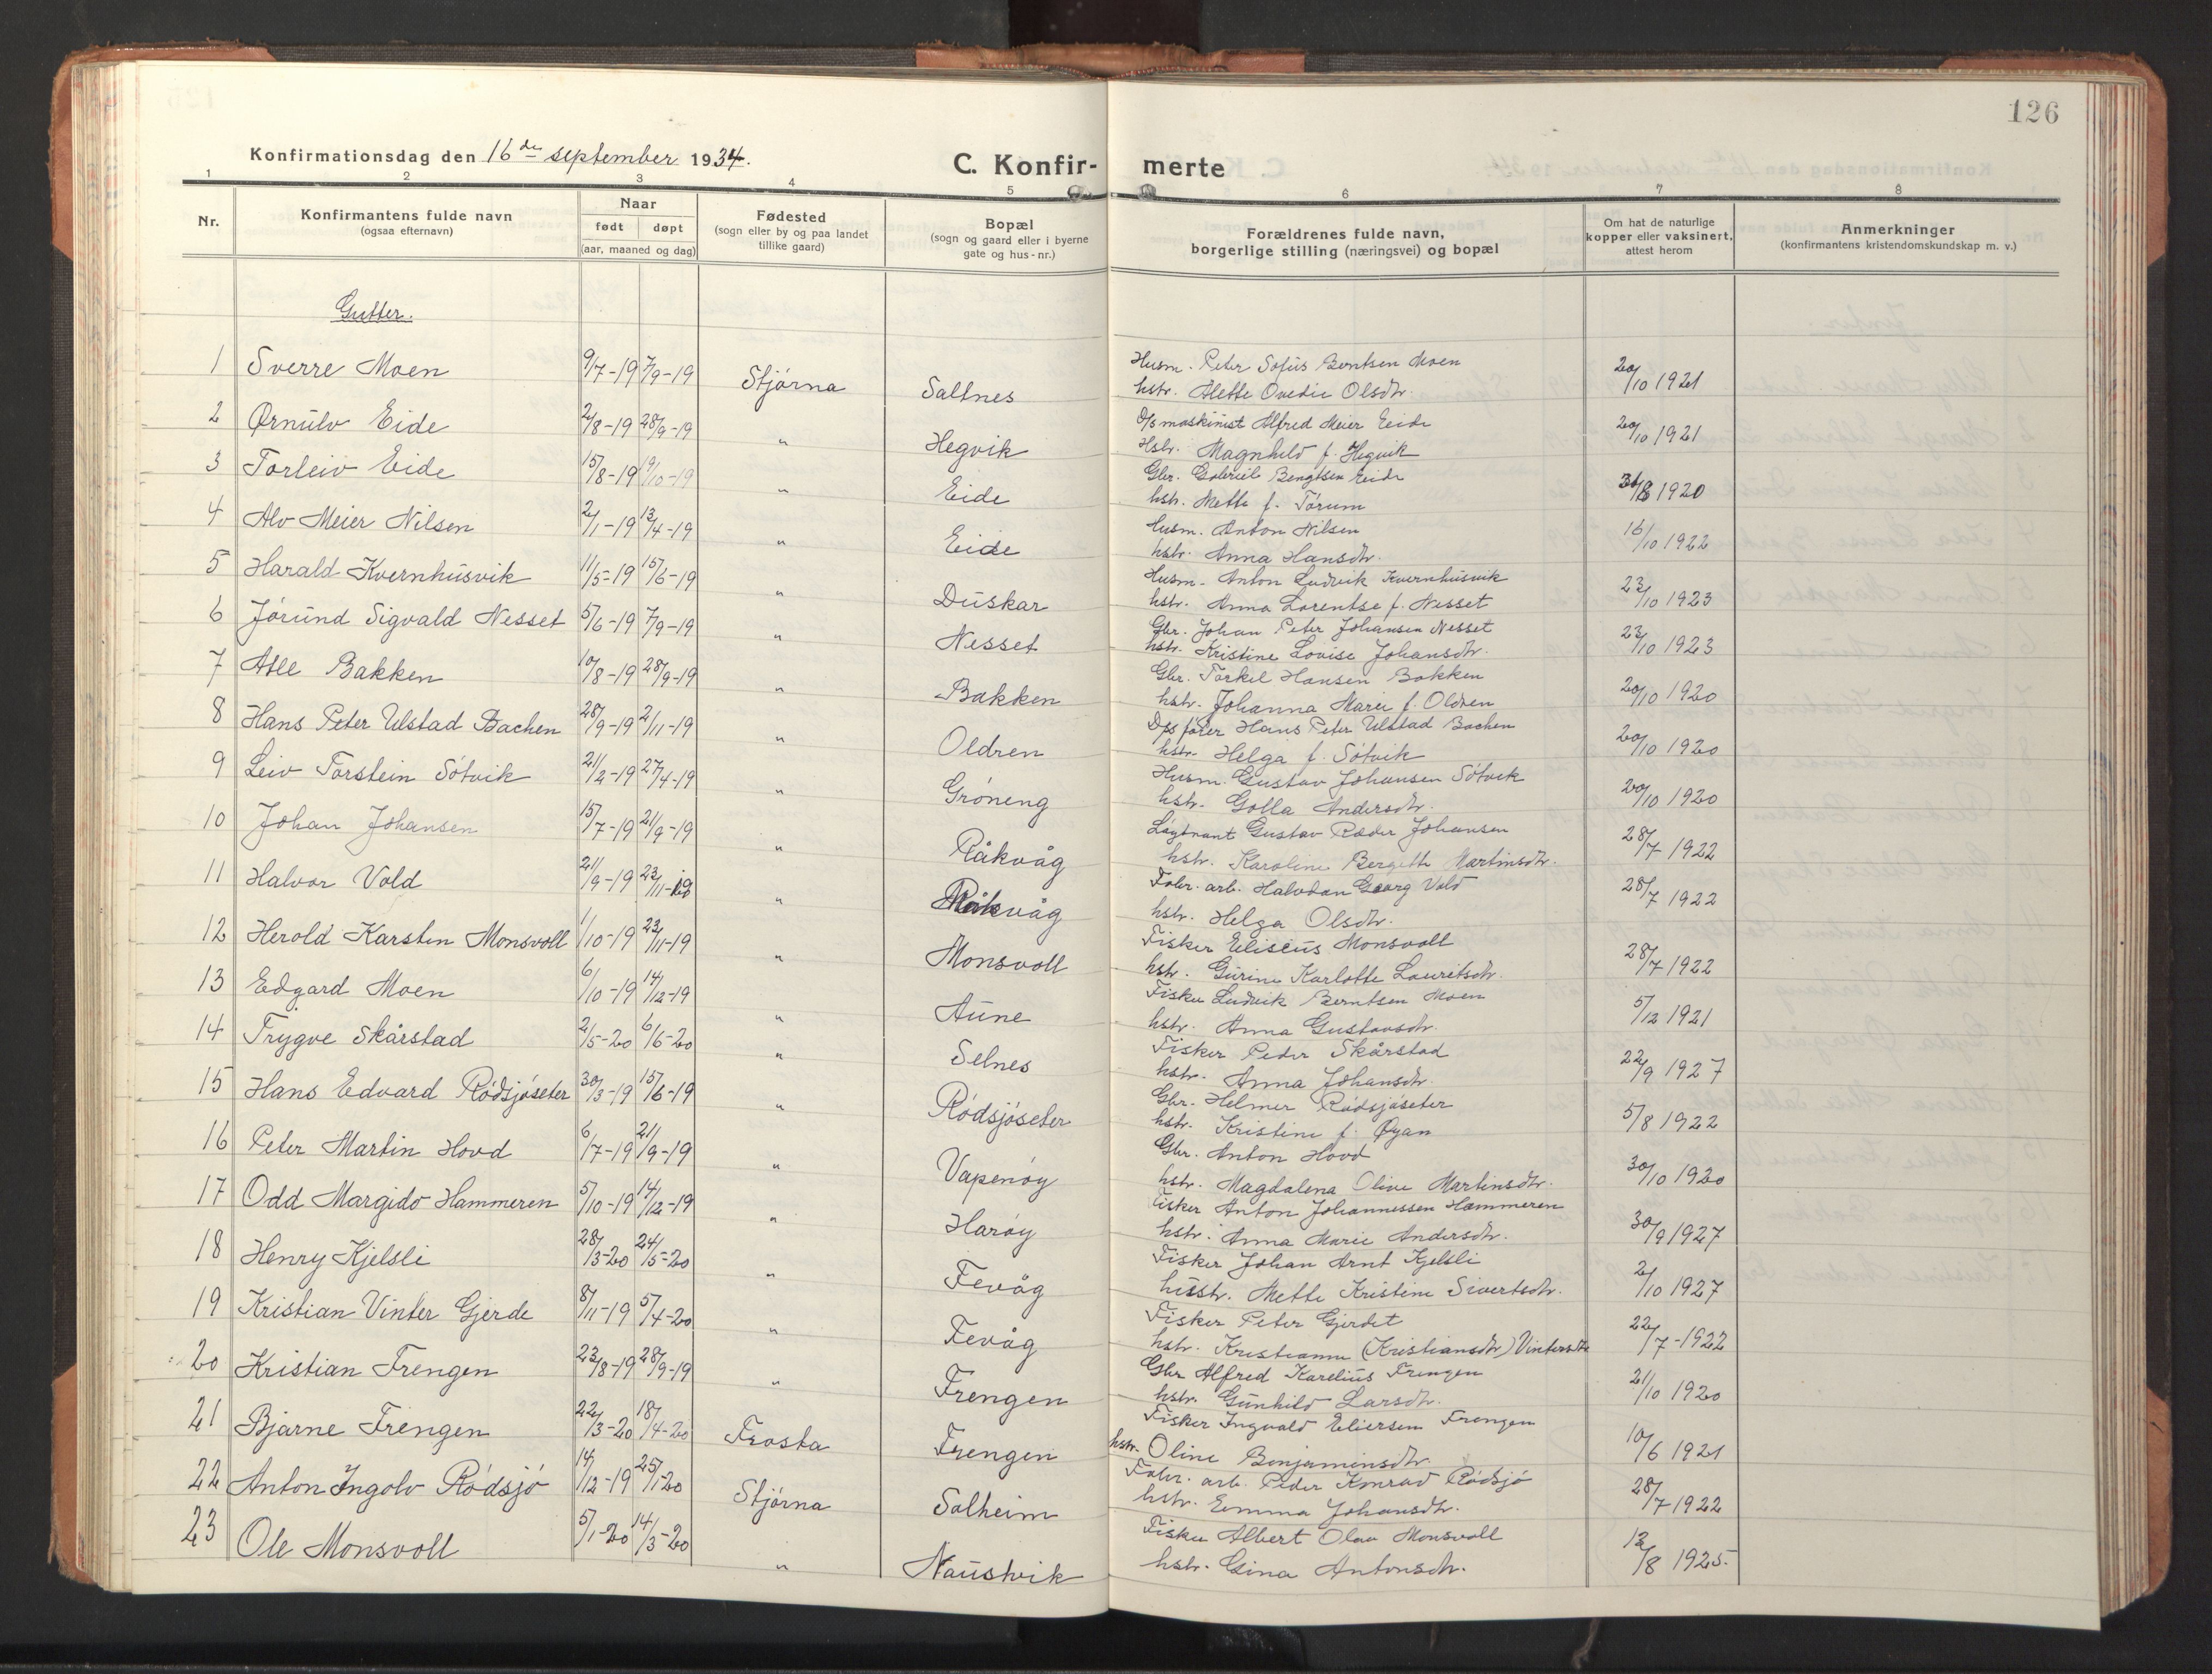 126
Konfirmationsdag den 16de september 1934.
C. Konfir- merte
1 2 3 4 5 6 7 8
Nr. | Konfirmantens fulde navn (ogsaa efternavn) | Naar født døpt (aar, maaned og dag) | Fødested (sogn eller by og paa landet tillike gaard) | Bopæl (sogn og gaard eller i byerne gate og hus-nr.) | Forældrenes fulde navn, borgerlige stilling (næringsvei) og bopæl | Om hat de naturlige kopper eller vaksinert, attest herom | Anmerkninger (konfirmantens kristendomskundskap m. v.)
Gutter.
1 Sverre Moen 9/7-19 7/9-19 Stjørna Saltnes Husm. Peter Sofus Berntsen Moen 20/10 1921
hstr. Alette Ovedie Olsdtr.
2 Ørnulv Eide 2/8-19 28/9-19 " Hegvik D/s maskinist Alfred Meier Eide 20/10 1921
Hstr. Magnhild f. Hegvik
3 Torleiv Eide 15/8-19 19/10-19 " Eide Gbr. Gabriel Bengtsen Eide 31/8 1920
hstr. Mette f. Tørum
4 Alv Meier Nilsen 2/1-19 13/4-19 " Eide Husm. Anton Nilsen 16/10 1922
hstr. Anna Hansdtr.
5 Harald Kvernhusvik 11/5-19 15/6-19 " Duskar Husm. Anton Ludvik Kvernhusvik 23/10 1923
hstr. Anna Lorentse f. Nesset
6 Jørund Sigvald Nesset 5/6-19 7/9-19 " Nesset Gbr. Johan Peter Johansen Nesset 23/10 1923
hstr. Kristine Lovise Johansdtr.
7 Atle Bakken 10/8-19 28/9-19 " Bakken Gbr. Torkel Hansen Bakken 20/10 1920
hstr. Johanna Marie f. Oldren
8 Hans Peter Ulstad Bachen 28/9-19 2/11-19 " Oldren Hans Peter Ulstad Bachen 20/10 1920
hstr. Helga f. Søtvik
9 Leiv Torstein Søtvik 21/2-19 27/4-19 " Grøneng Husm. Gustav Johansen Søtvik 20/10 1920
hstr. Golla Andersdtr.
10 Johan Johansen 15/7-19 21/9-19 " Råkvåg Løytnant Gustav Ræder Johansen 28/7 1922
hstr. Karoline Bergitte Martinsdtr.
11 Halvor Vold 21/9-19 23/11-19 " Råkvåg Fabr. arb. Halvdan Georg Vold 28/7 1922
hstr. Helga Olsdtr.
12 Herold Karsten Monsvoll 1/10-19 23/11-19 " Monsvoll Fisker Eliseus Monsvoll 28/7 1922
hstr. Gurine Karlotte Lauritsdtr.
13 Edgard Moen 6/10-19 14/12-19 " Aune Fisker Ludvik Berntsen Moen 5/12 1921
hstr. Anna Gustavsdtr.
14 Trygve Skårstad 2/5-20 6/6-20 " Selnes Fisker Peder Skårstad 22/9 1927
hstr. Anna Johansdtr.
15 Hans Edvard Rødsjøseter 30/3-19 15/6-19 " Rødsjøseter Gbr. Helmer Rødsjøseter 5/8 1922
hstr. Kristine f. Øyan
16 Peter Martin Hovd 6/7-19 21/9-19 " Vapenøy Gbr. Anton Hovd 30/10 1920
hstr. Magdalena Olive Martinsdtr.
17 Odd Margido Hammeren 5/10-19 14/12-19 " Harøy Fisker Anton Johannessen Hammeren 30/9 1927
hstr. Anna Marie Andersdtr.
18 Henry Kjelsli 28/3-20 24/5-20 " Fevåg Fisker Johan Arnt Kjelsli 2/10 1927
husstr. Mette Kristine Sivertsdtr.
19 Kristian Vinter Gjerde 8/11-19 5/4-20 " Fevåg Fisker Peter Gjerdet 22/7-1922
hstr. Kristianne (Kristiansdtr) Vintersdtr
20 Kristian Frengen 23/8-19 28/9-19 " Frengen Gbr Alfred Karelius Frengen 21/10 1920
hstr. Gunhild Larsdtr.
21 Bjarne Frengen 22/3-20 18/4-20 Frosta Frengen Fisker Ingvald Eliersen Frengen 10/6 1921
hstr. Oline Benjaminsdtr.
22 Anton Ingolv Rødsjø 14/12-19 25/1-20 Stjørna Solheim Fabr. arb. Peder Konrad Rødsjø 28/7 1922
hstr. Emma Johansdtr.
23 Ole Monsvoll 5/1-20 14/3-20 " Naustvik Fisker Albert Olav Monsvoll 13/8 1925.
hstr. Gina Antonsdtr.